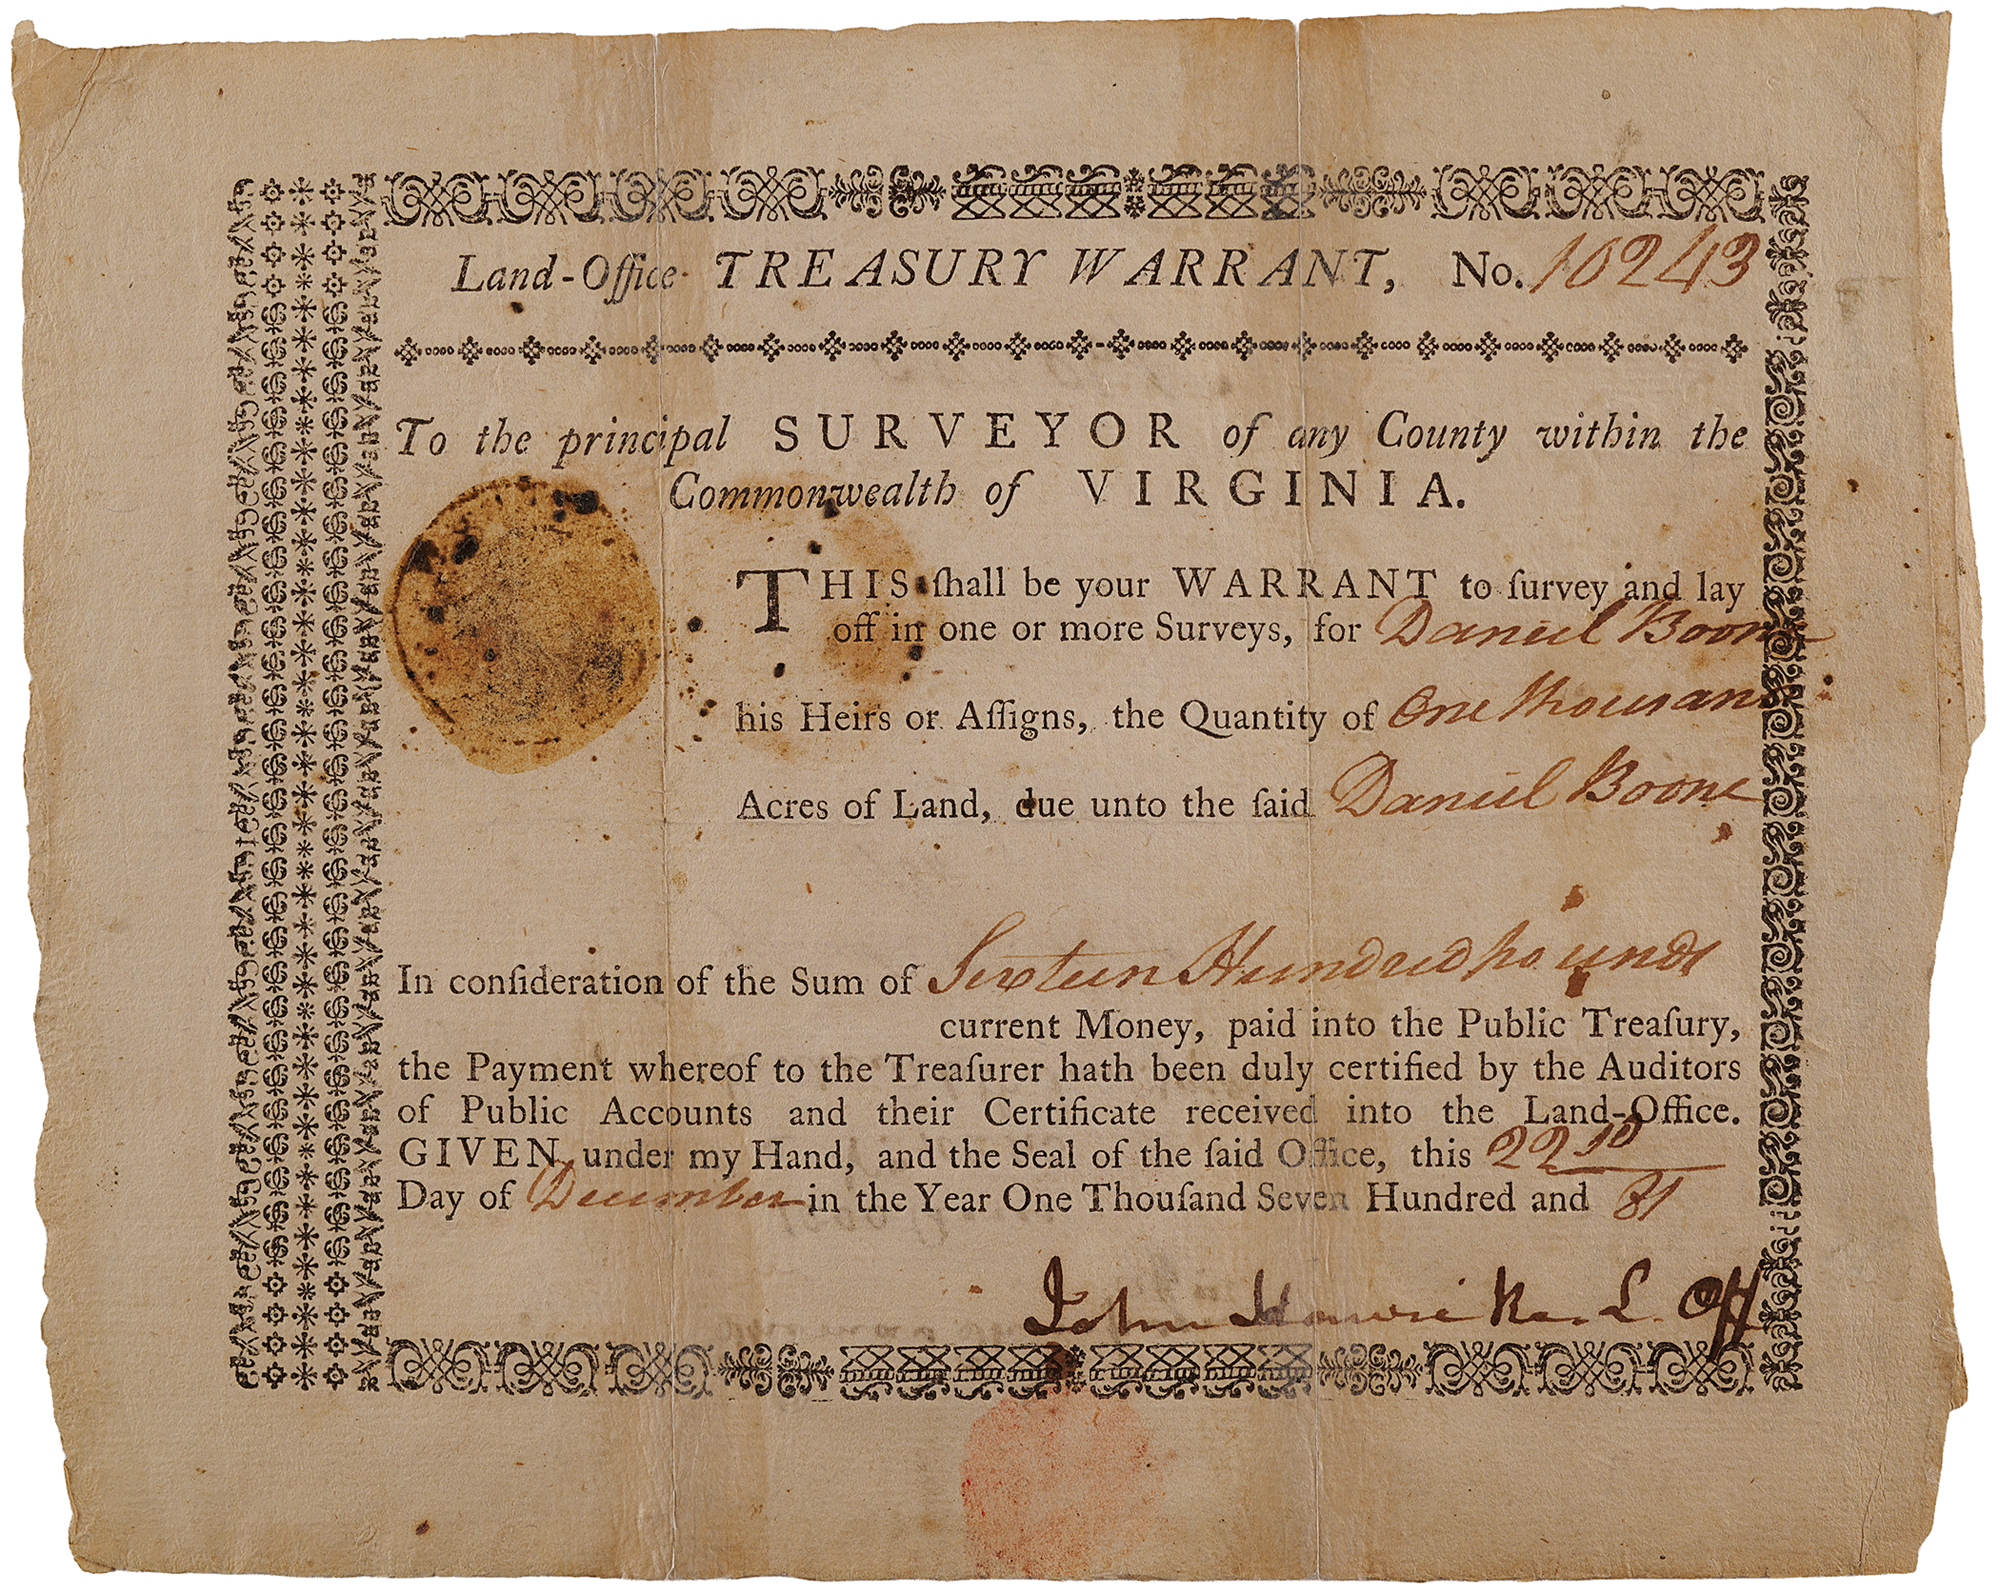 Land-Office TREASURY WARRANT, No. 10243
To the principal SURVEYOR of any County within the
Commonwealth of VIRGINIA.
THIS ſhall be your WARRANT to ſurvey and lay
off in one or more Surveys, for Daniel Boone
his Heirs or Aſſigns, the Quantity of One thousand
Acres of Land, due unto the ſaid Daniel Boone
In conſideration of the Sum of Sixteen Hundred pounds
current Money, paid into the Public Treaſury,
the Payment whereof to the Treaſurer hath been duly certified by the Auditors
of Public Accounts and their Certificate received into the Land-Office.
GIVEN under my Hand, and the Seal of the ſaid Office, this 22nd
Day of December in the Year One Thouſand Seven Hundred and 81
John Hawkins L. Off